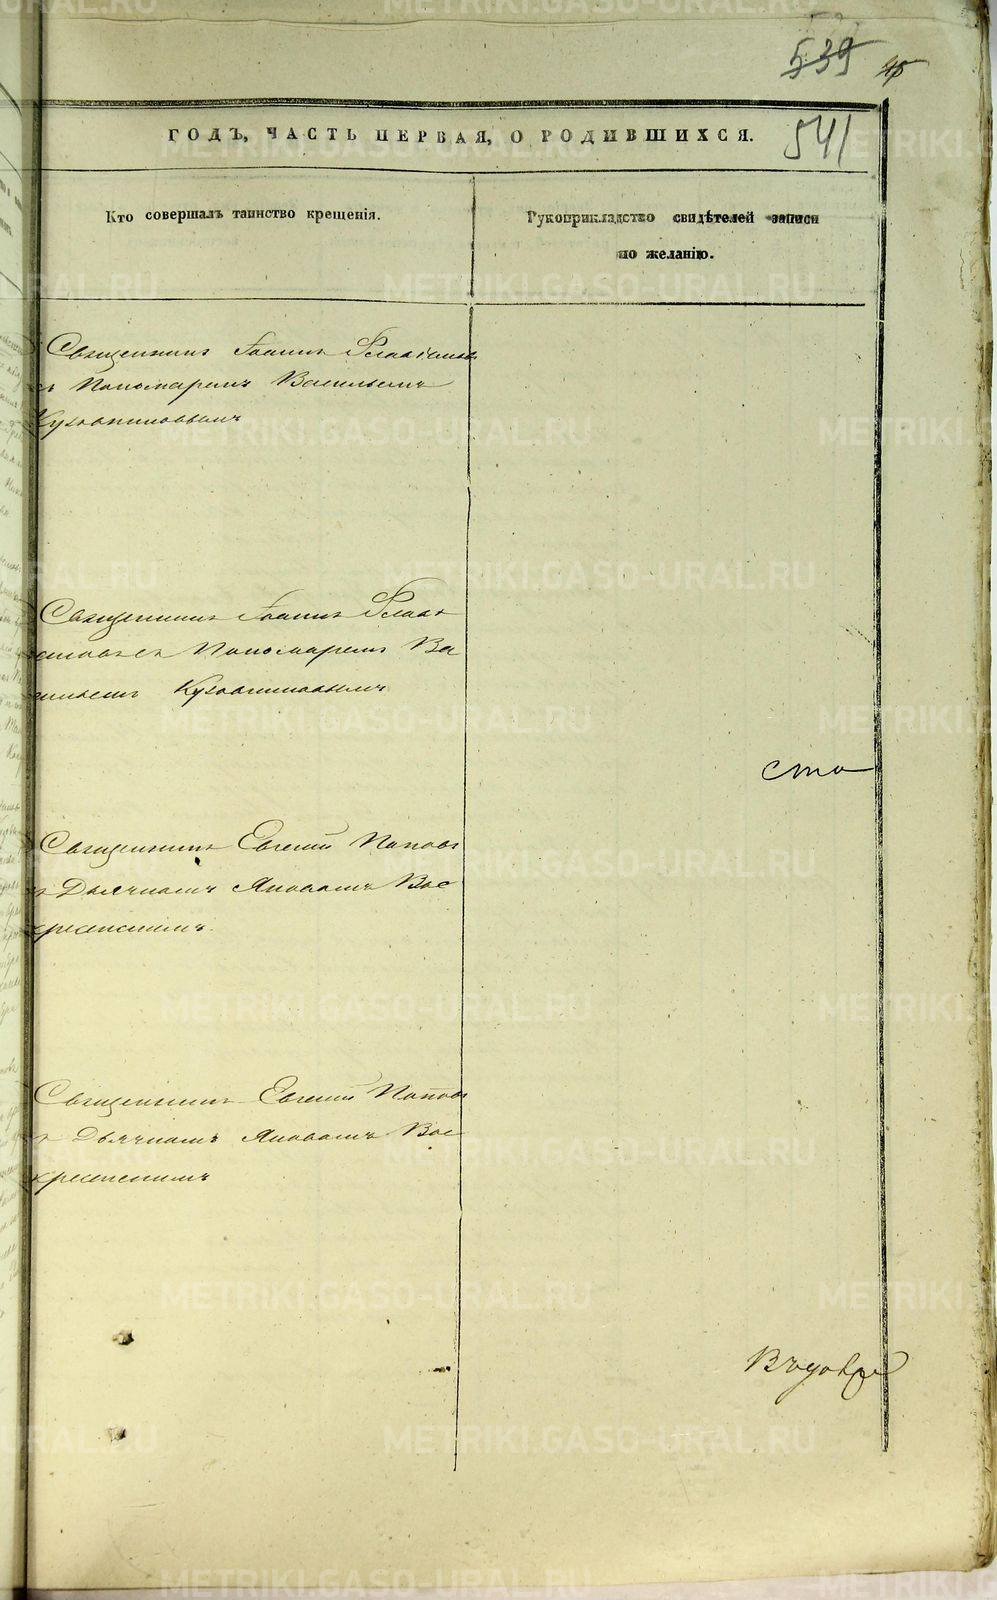 539 45
541
ГОДЪ, ЧАСТЬ ПЕРВАЯ, О РОДИВШИХСЯ.
Кто совершалъ таинство крещенія.
Рукоприкладство свидѣтелей записи
по желанію.
Священникъ Іоаннъ
съ Пономаремъ Васильемъ
Священникъ Іоаннъ
съ Пономаремъ Ва
сильемъ
сто
Священникъ Евгеній Поповъ
съ Дьячкомъ Яковомъ Вос
кресенскимъ.
Священникъ Евгеній Поповъ
съ Дьячкомъ Яковомъ Вос
кресенскимъ
METRIKI.GASO-URAL.RU